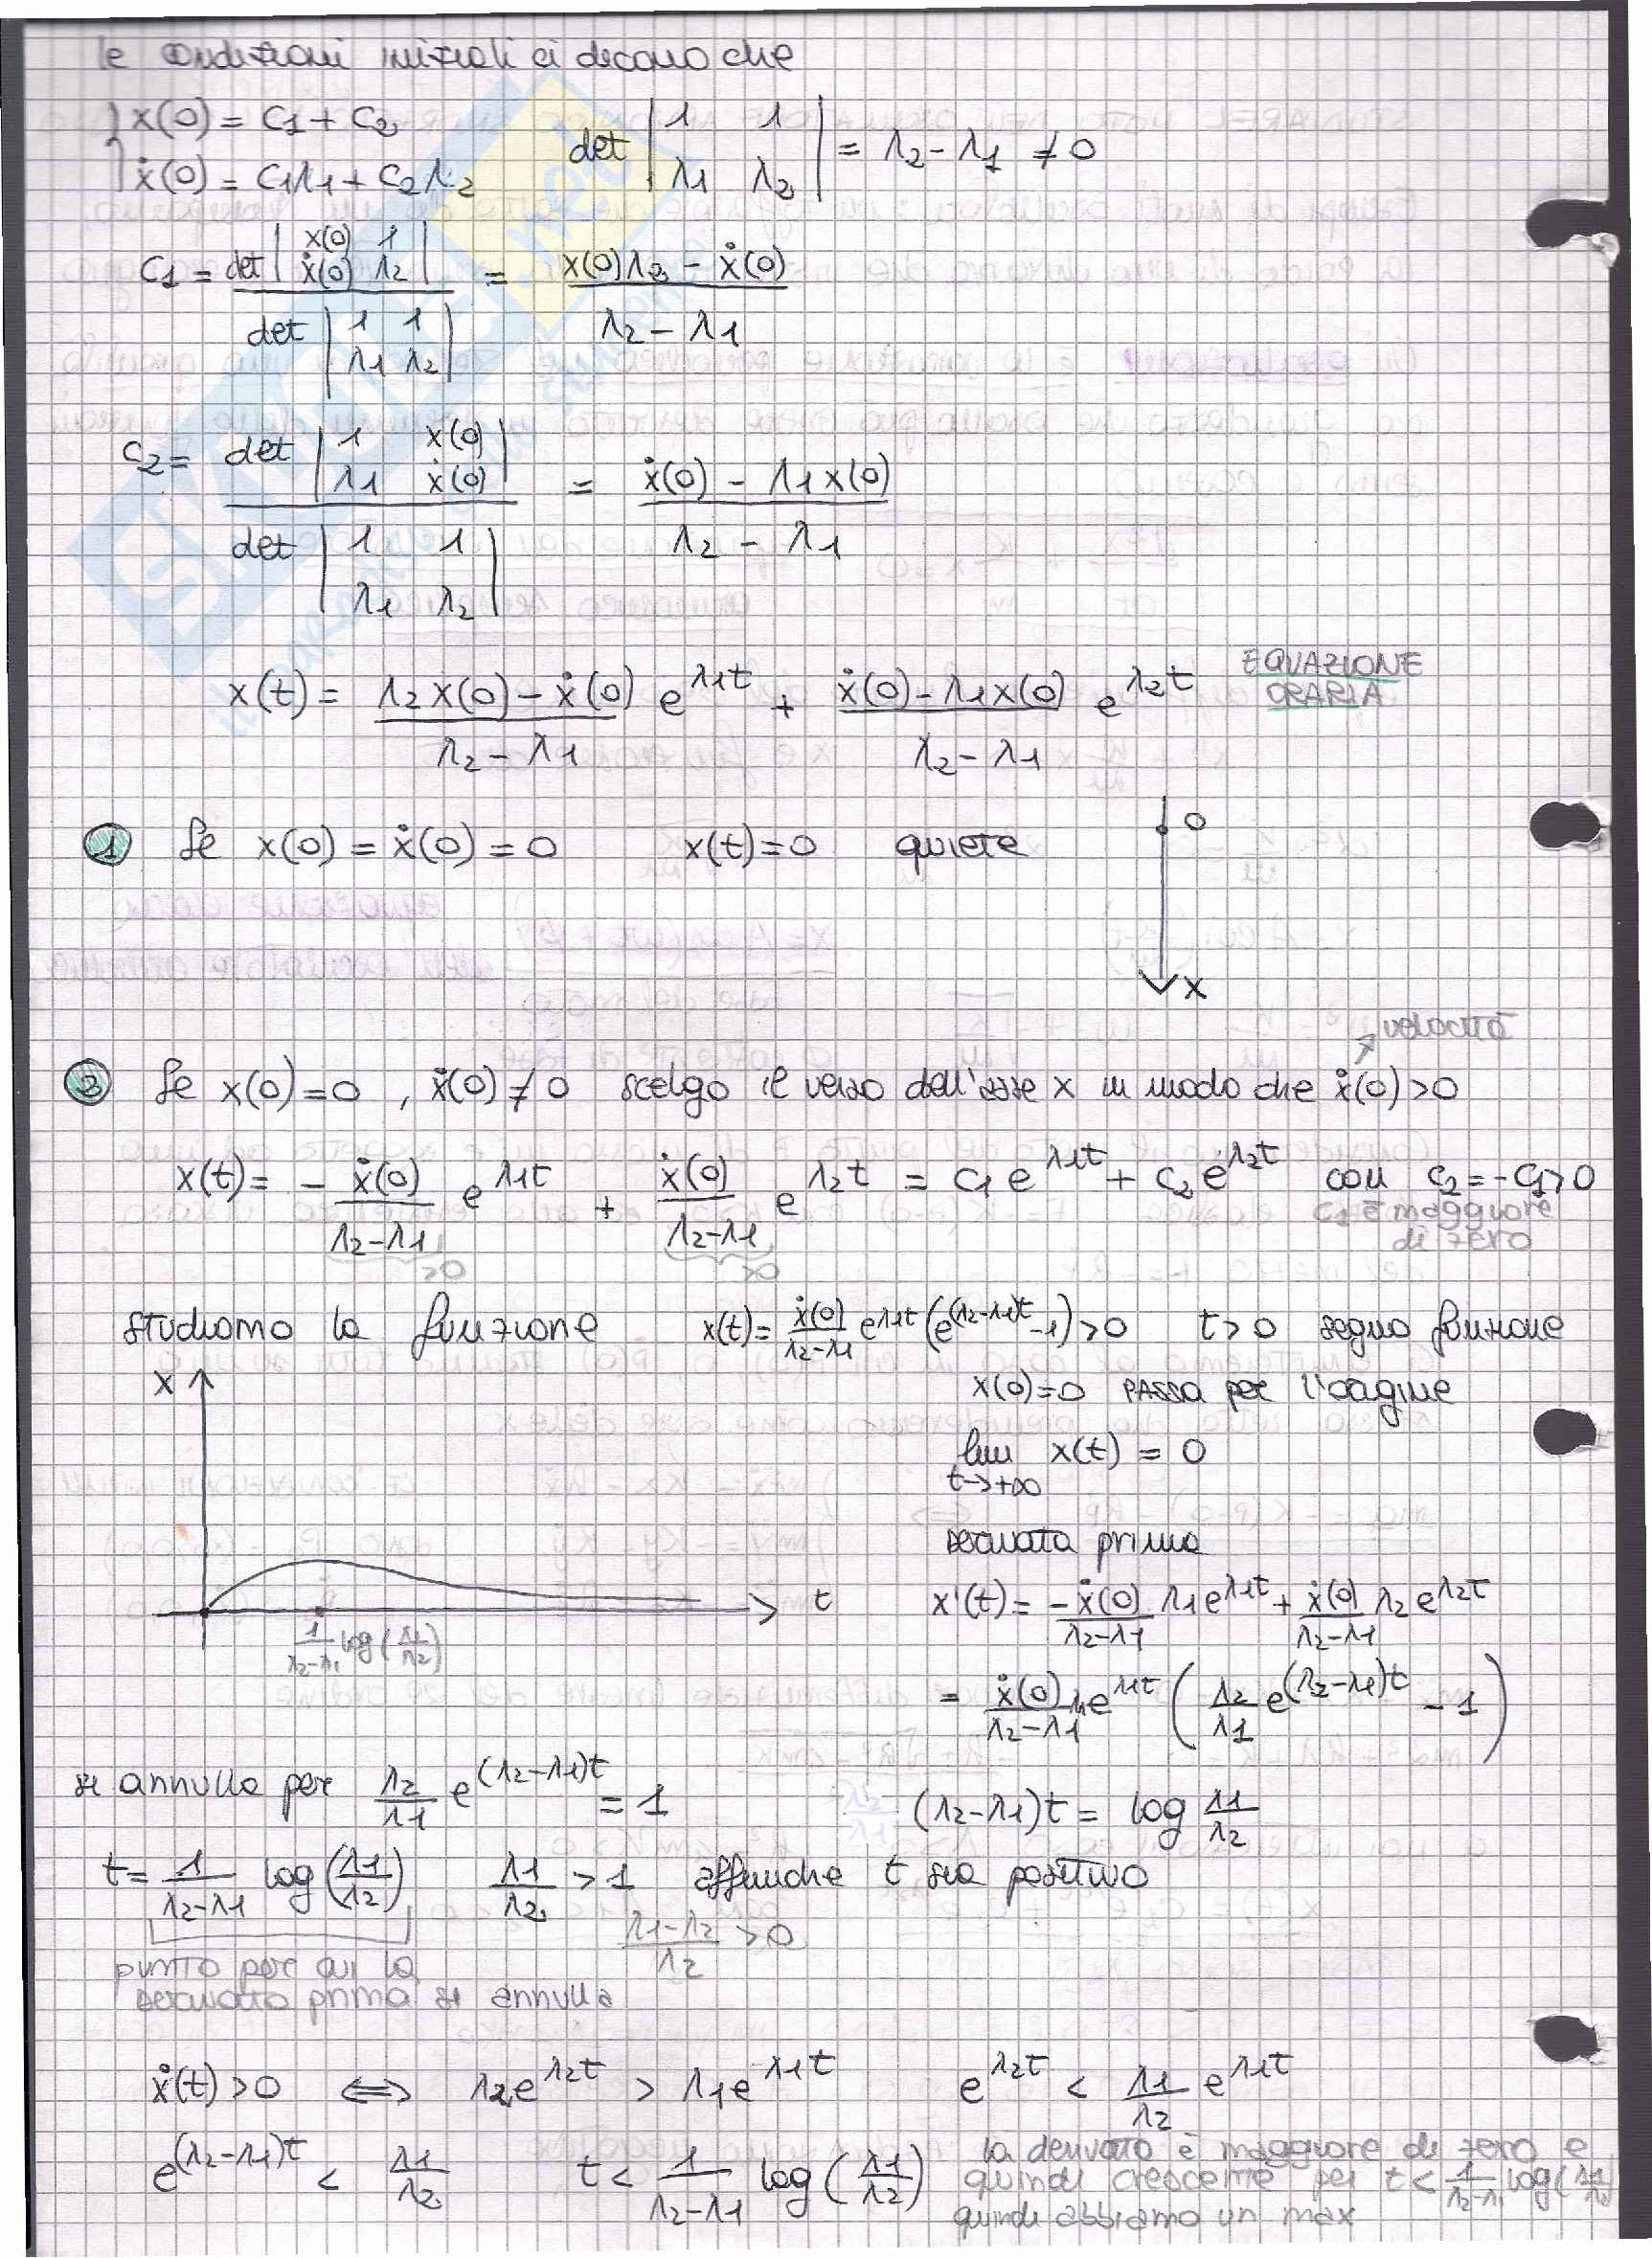 le condizioni iniziali ci dicono che
{ x(0) = C1 + C2
ẋ(0) = C1λ1 + C2λ2
det | 1 1 | = λ2 - λ1 ≠ 0
| λ1 λ2 |
C1 = det | x(0) 1 | = x(0)λ2 - ẋ(0)
| ẋ(0) λ2 |
det | 1 1 | λ2 - λ1
| λ1 λ2 |
C2 = det | 1 x(0) | = ẋ(0) - λ1x(0)
| λ1 ẋ(0) |
det | 1 1 | λ2 - λ1
| λ1 λ2 |
x(t) = λ2x(0) - ẋ(0) / λ2 - λ1 e^λ1t + ẋ(0) - λ1x(0) / λ2 - λ1 e^λ2t EQUAZIONE
ORARIA
1 Se x(0) = ẋ(0) = 0 x(t) = 0 quiete
0
x
velocità
2 Se x(0) = 0, ẋ(0) ≠ 0 scelgo il verso dell'asse x in modo che ẋ(0) > 0
x(t) = - ẋ(0) / λ2-λ1 e^λ1t + ẋ(0) / λ2-λ1 e^λ2t = C1 e^λ1t + C2 e^λ2t con C2 = -C1 > 0
>0 >0
C1 è maggiore
di zero
studiamo la funzione x(t) = ẋ(0) / λ2-λ1 e^λ1t (e^(λ2-λ1)t - 1) > 0 t > 0 segno funzione
x
x(0) = 0 PASSA per l'origine
lim x(t) = 0
t→+∞
derivata prima
t
x'(t) = -ẋ(0) / λ2-λ1 λ1e^λ1t + ẋ(0) / λ2-λ1 λ2e^λ2t
1 / λ2-λ1 log(λ1/λ2)
= ẋ(0) / λ2-λ1 λ1e^λ1t (λ2/λ1 e^(λ2-λ1)t - 1)
si annulla per λ2/λ1 e^(λ2-λ1)t = 1 (λ2-λ1)t = log λ1/λ2
t = 1 / λ2-λ1 log(λ1/λ2) λ1/λ2 > 1 affinche t sia positivo
λ1-λ2 / λ2 > 0
punto per cui la
derivata prima si annulla
ẋ(t) > 0 ⇔ λ2e^λ2t > λ1e^λ1t e^λ2t < λ1/λ2 e^λ1t
e^(λ2-λ1)t < λ1/λ2 t < 1 / λ2-λ1 log(λ1/λ2)
la derivata è maggiore di zero e
quindi crescente per t < 1 / λ2-λ1 log(λ1/λ2)
quindi abbiamo un max